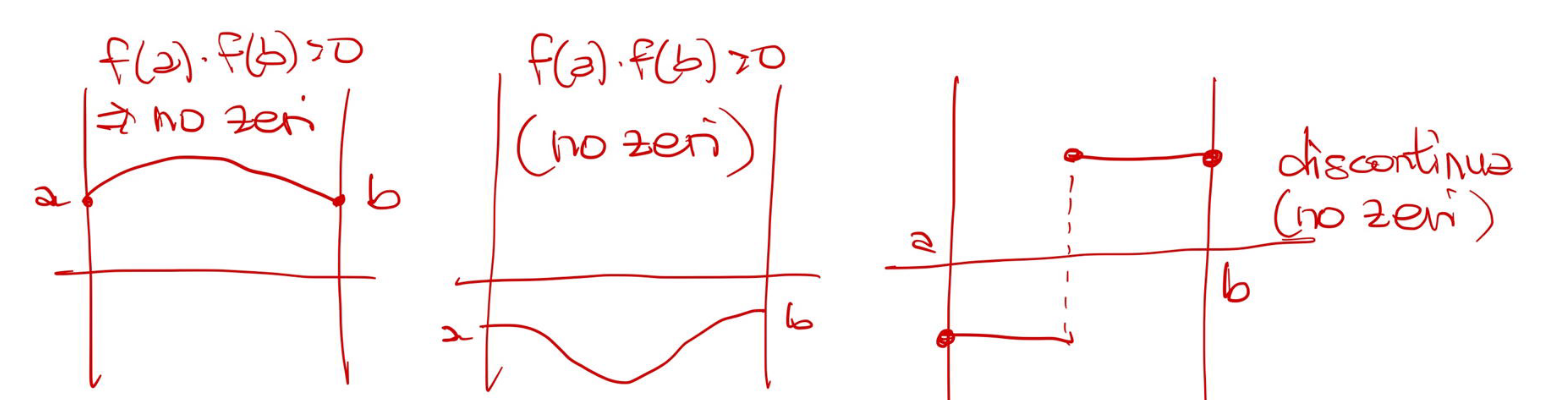 f(a)·f(b)>0
⇒ no zeri
a
b
f(a)·f(b)>0
(no zeri)
a
b
a
b
discontinua
(no zeri)